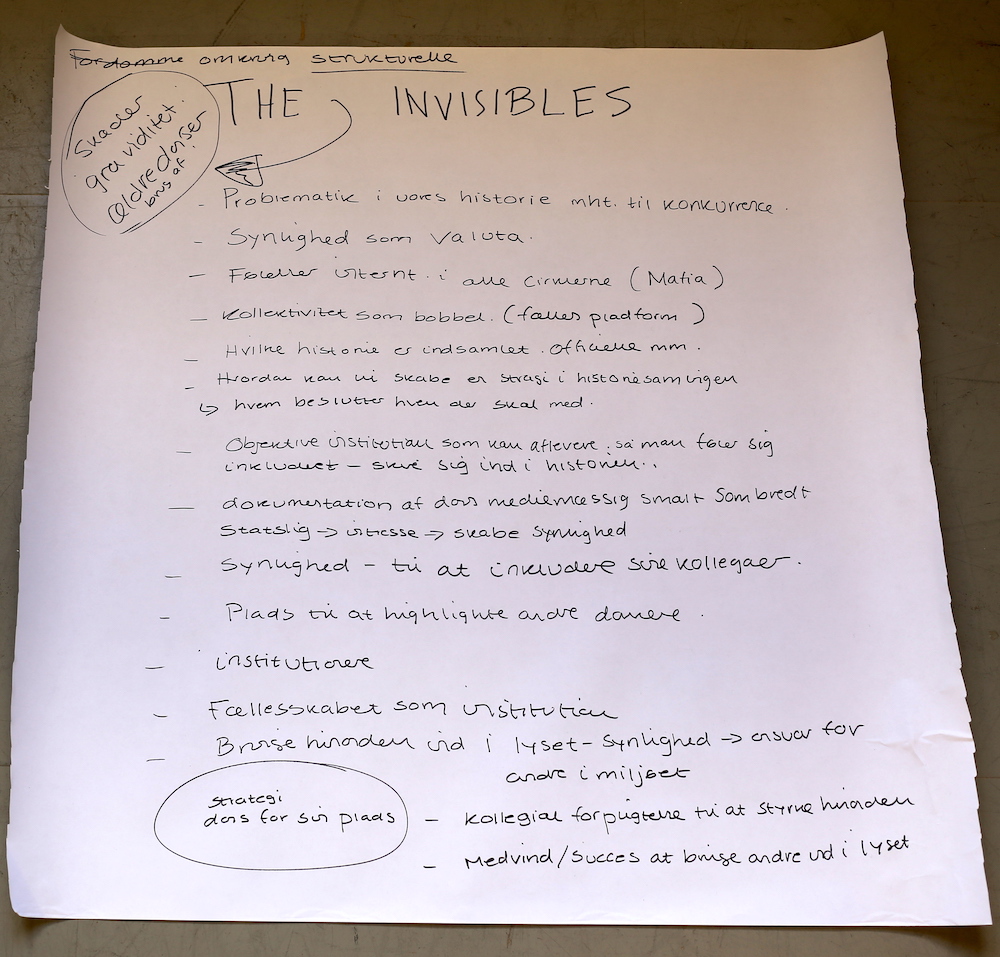 Fordomme omkring strukturelle
THE INVISIBLES
Skader
graviditet.
Ældre danser
brug af
- Problematik i vores historie mht. til konkurrence.
- Synlighed som valuta.
- internt i alle (Mafia)
- Kollektivitet som bobbel. (fælles pladform)
- Hvilke historie er indsamlet. Officielle mm.
- Hvordan kan vi skabe en i
↳ hvem beslutter hvem der skal med.
- Objektive institution som kan aflevere : så man får sig
inkluderet - skrive sig ind i historien..
- dokumentation af dans mediemæssig smalt som bredt
Statslig → intresse → skabe synlighed
- Synlighed - til at inkludere sine kollegaer.
- Plads til at highlighte andre dansere.
- institutionere
- Fællesskabet som institution
- Bringe hinanden ind i lyset - synlighed → ansvar for
andre i miljøet
strategi
dans for sin plads
- kollegial forpligtelse til at styrke hinanden
- Medvind/Succes at bringe andre ind i lyset